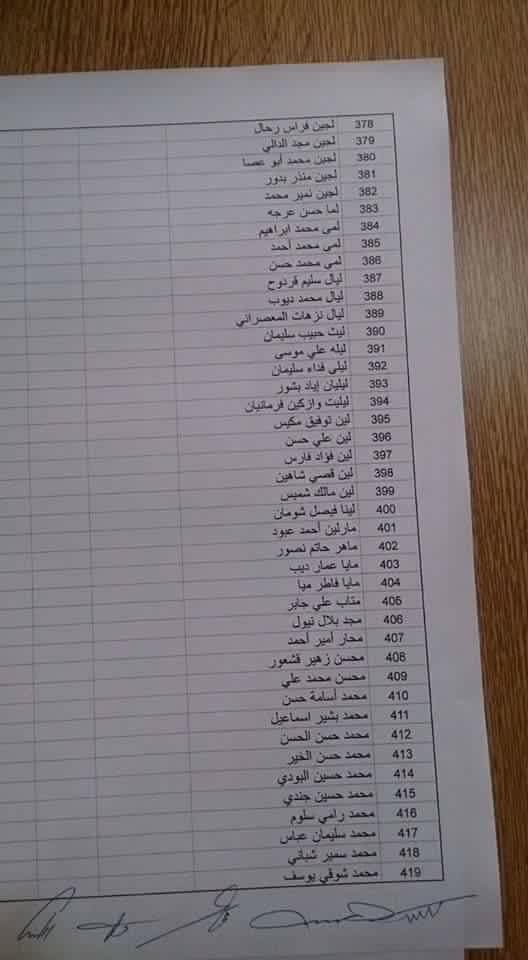 378 لجين فراس رحال
379 لجين مجد الدالي
380 لجين محمد أبو عصا
381 لجين منذر بدور
382 لجين نمير محمد
383 لما حسن عرجه
384 لمى محمد ابراهيم
385 لمى محمد أحمد
386 لمى محمد حسن
387 ليال سليم قردوح
388 ليال محمد ديوب
389 ليال نزهات المعصراني
390 ليث حبيب سليمان
391 ليله علي موسى
392 ليلى فداء سليمان
393 ليليان إياد بشور
394 ليليت وازكين فرمانيان
395 لين توفيق مكيس
396 لين علي حسن
397 لين فؤاد فارس
398 لين قصي شاهين
399 لين مالك شميس
400 لينا فيصل شومان
401 مارلين أحمد عبود
402 ماهر حاتم نصور
403 مايا عمار ديب
404 مايا فاطر ميا
405 متاب علي جابر
406 مجد بلال نيول
407 محار أمير أحمد
408 محسن زهير قشعور
409 محسن محمد علي
410 محمد أسامة حسن
411 محمد بشير اسماعيل
412 محمد حسن الحسن
413 محمد حسن الخير
414 محمد حسين البودي
415 محمد حسين جندي
416 محمد رامي سلوم
417 محمد سليمان عباس
418 محمد سمير شباني
419 محمد شوقي يوسف